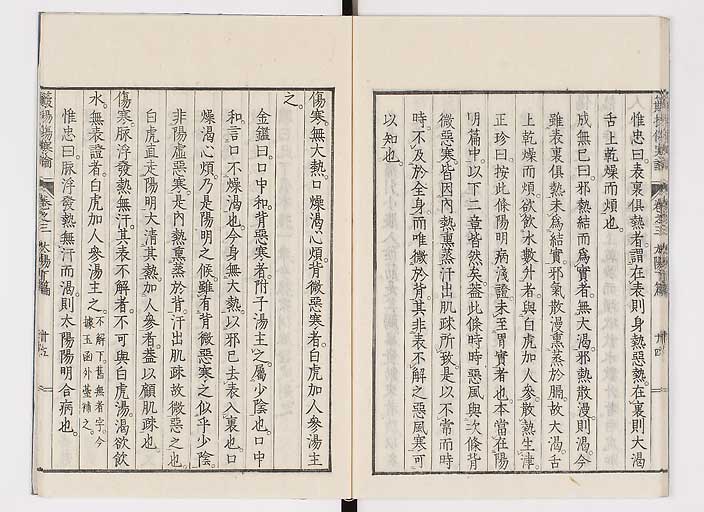 惟忠曰。表裏俱熱者。謂在表則身熱惡熱。在裏則大渴
舌上乾燥而煩也。
成無已曰。邪熱結而爲實者。無大渴。邪熱散漫則渴。今
雖表裏俱熱。未爲結實。邪氣散漫。熏蒸於膈。故大渴。舌
上乾燥而煩。欲飲水數升者。與白虎加人參。散熱生津。
正珍曰。按此條陽明病淺證。未至胃實者也。本當在陽
明篇中。以下二章皆然矣。蓋此條時時惡風。與次條背
微惡寒。皆因内熱熏蒸。汗出肌疎所致。是以不常而時
時。不及於全身。而唯微於背。其非表不解之惡風寒。可
以知也。
傷寒。無大熱。口燥渴。心煩。背微惡寒者。白虎加人參湯主
之。
金鑑曰。口中和。背惡寒者。附子湯主之。屬少陰也。口中
和。言口不燥渴也。今身無大熱。以邪已去表入裏也。口
燥渴心煩。乃是陽明之候。雖有背微惡寒之似乎少陰。
非陽虛惡寒。是内熱熏蒸於背。汗出肌疎。故微惡之也。
白虎直走陽明。大清其熱。加人參者。蓋以顧肌疎也。
傷寒。脈浮。發熱無汗。其表不解者。不可與白虎湯。渴欲飲
水。無表證者。白虎加人參湯主之。不解下舊無者字。今據玉函外臺補之。
惟忠曰。脈浮。發熱無汗而渴。則太陽陽明合病也。
卷之三 太陽下篇